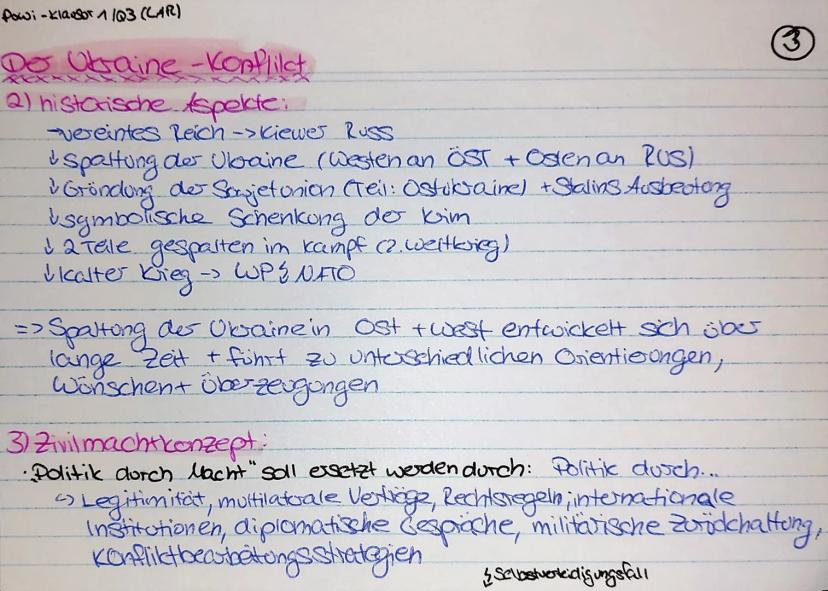 Powi-Klausur 1/Q3 (LAR)
3
Der Ukraine-Konflikt
2) historische Aspekte:
→vereintes Reich → Kiewer Russ
↓ Spaltung der Ukraine (Westen an ÖST + Osten an RUS)
↓ Gründung der Sowjetunion (Teil: Ostukraine) + Stalins Ausbeutung
↓ symbolische Schenkung der Krim
↓ 2 Teile gespalten im Kampf (2. Weltkrieg)
↓ Kalter Krieg → WP ↯ NATO
=> Spaltung der Ukraine in Ost + West entwickelt sich über
lange Zeit + führt zu unterschiedlichen Orientierungen,
Wünschen + Überzeugungen
3) Zivilmachtkonzept:
· „Politik durch Macht" soll ersetzt werden durch: Politik durch...
↪ Legitimität, multilaterale Verträge, Rechtsregeln, internationale
Institutionen, diplomatische Gespräche, militärische Zurückhaltung,
Konfliktbearbeitungsstrategien
↯ Selbstverteidigungsfall